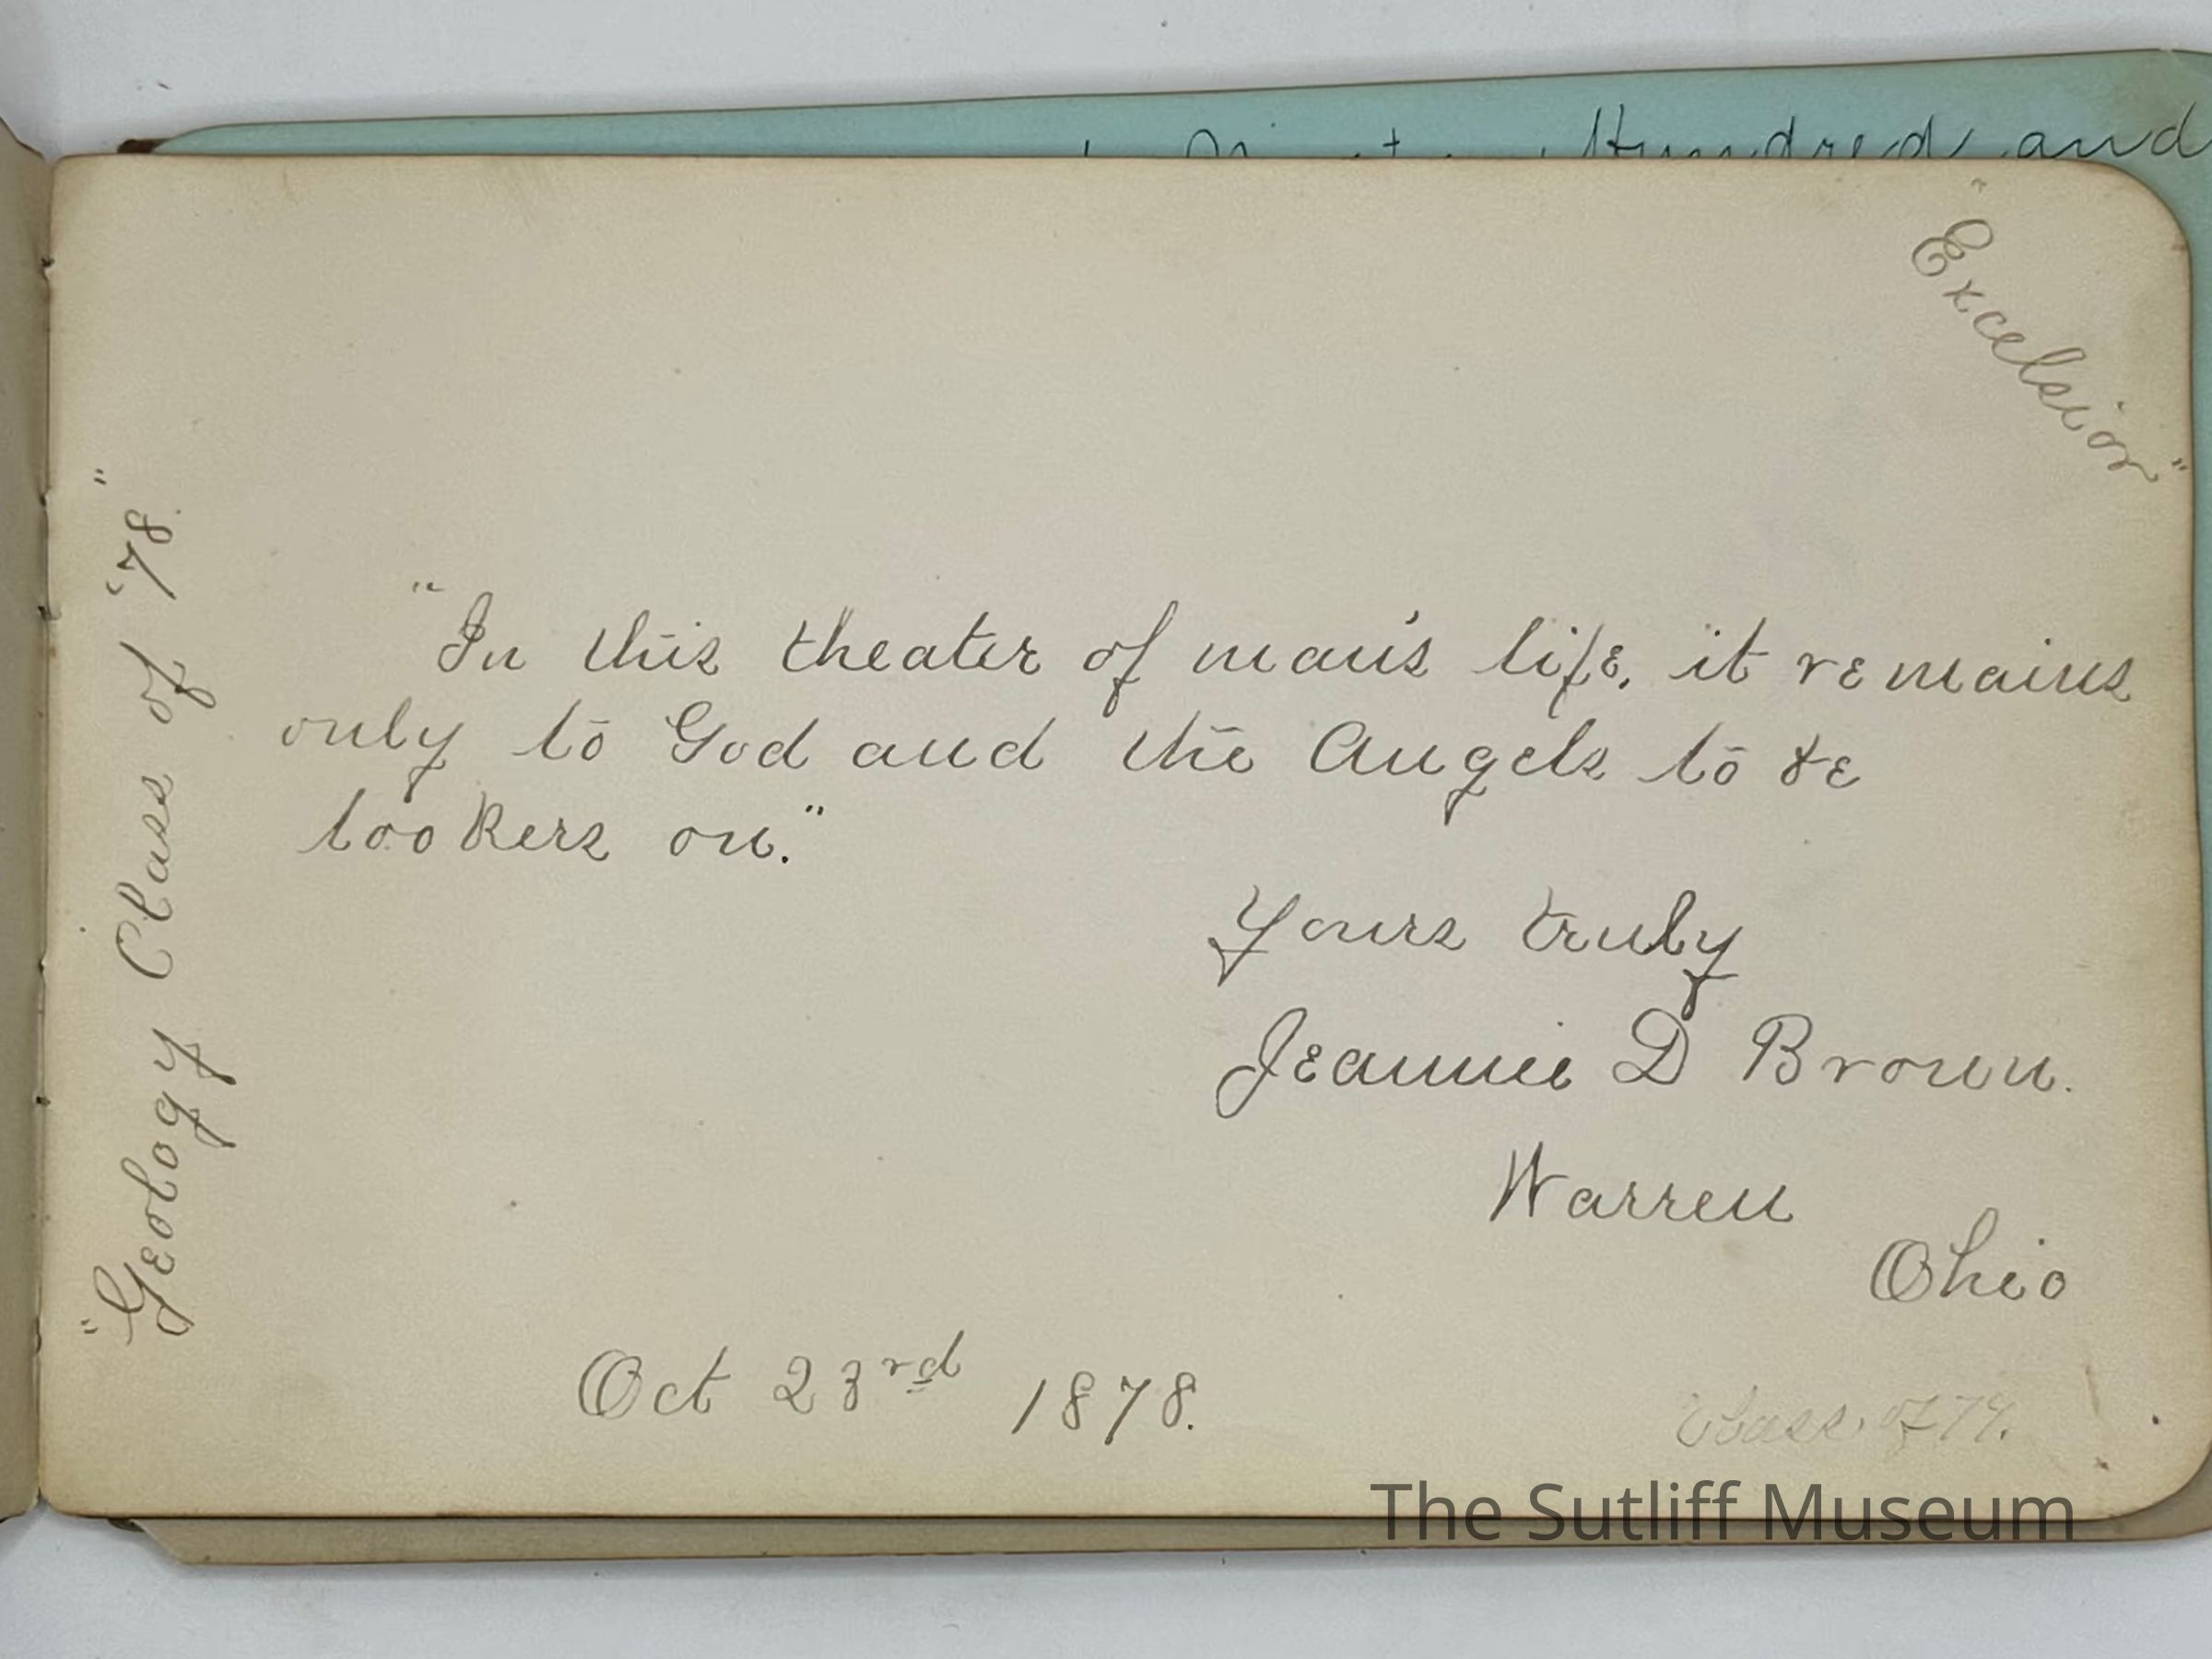 Hundred and
"Excelsior"
"Geology Class of '78."
"In this theater of man's life, it remains
only to God and the Angels to be
lookers on."
Yours truly
Jeannie D Brown.
Warren
Ohio
Oct 23rd 1878.
Class of 79.
The Sutliff Museum